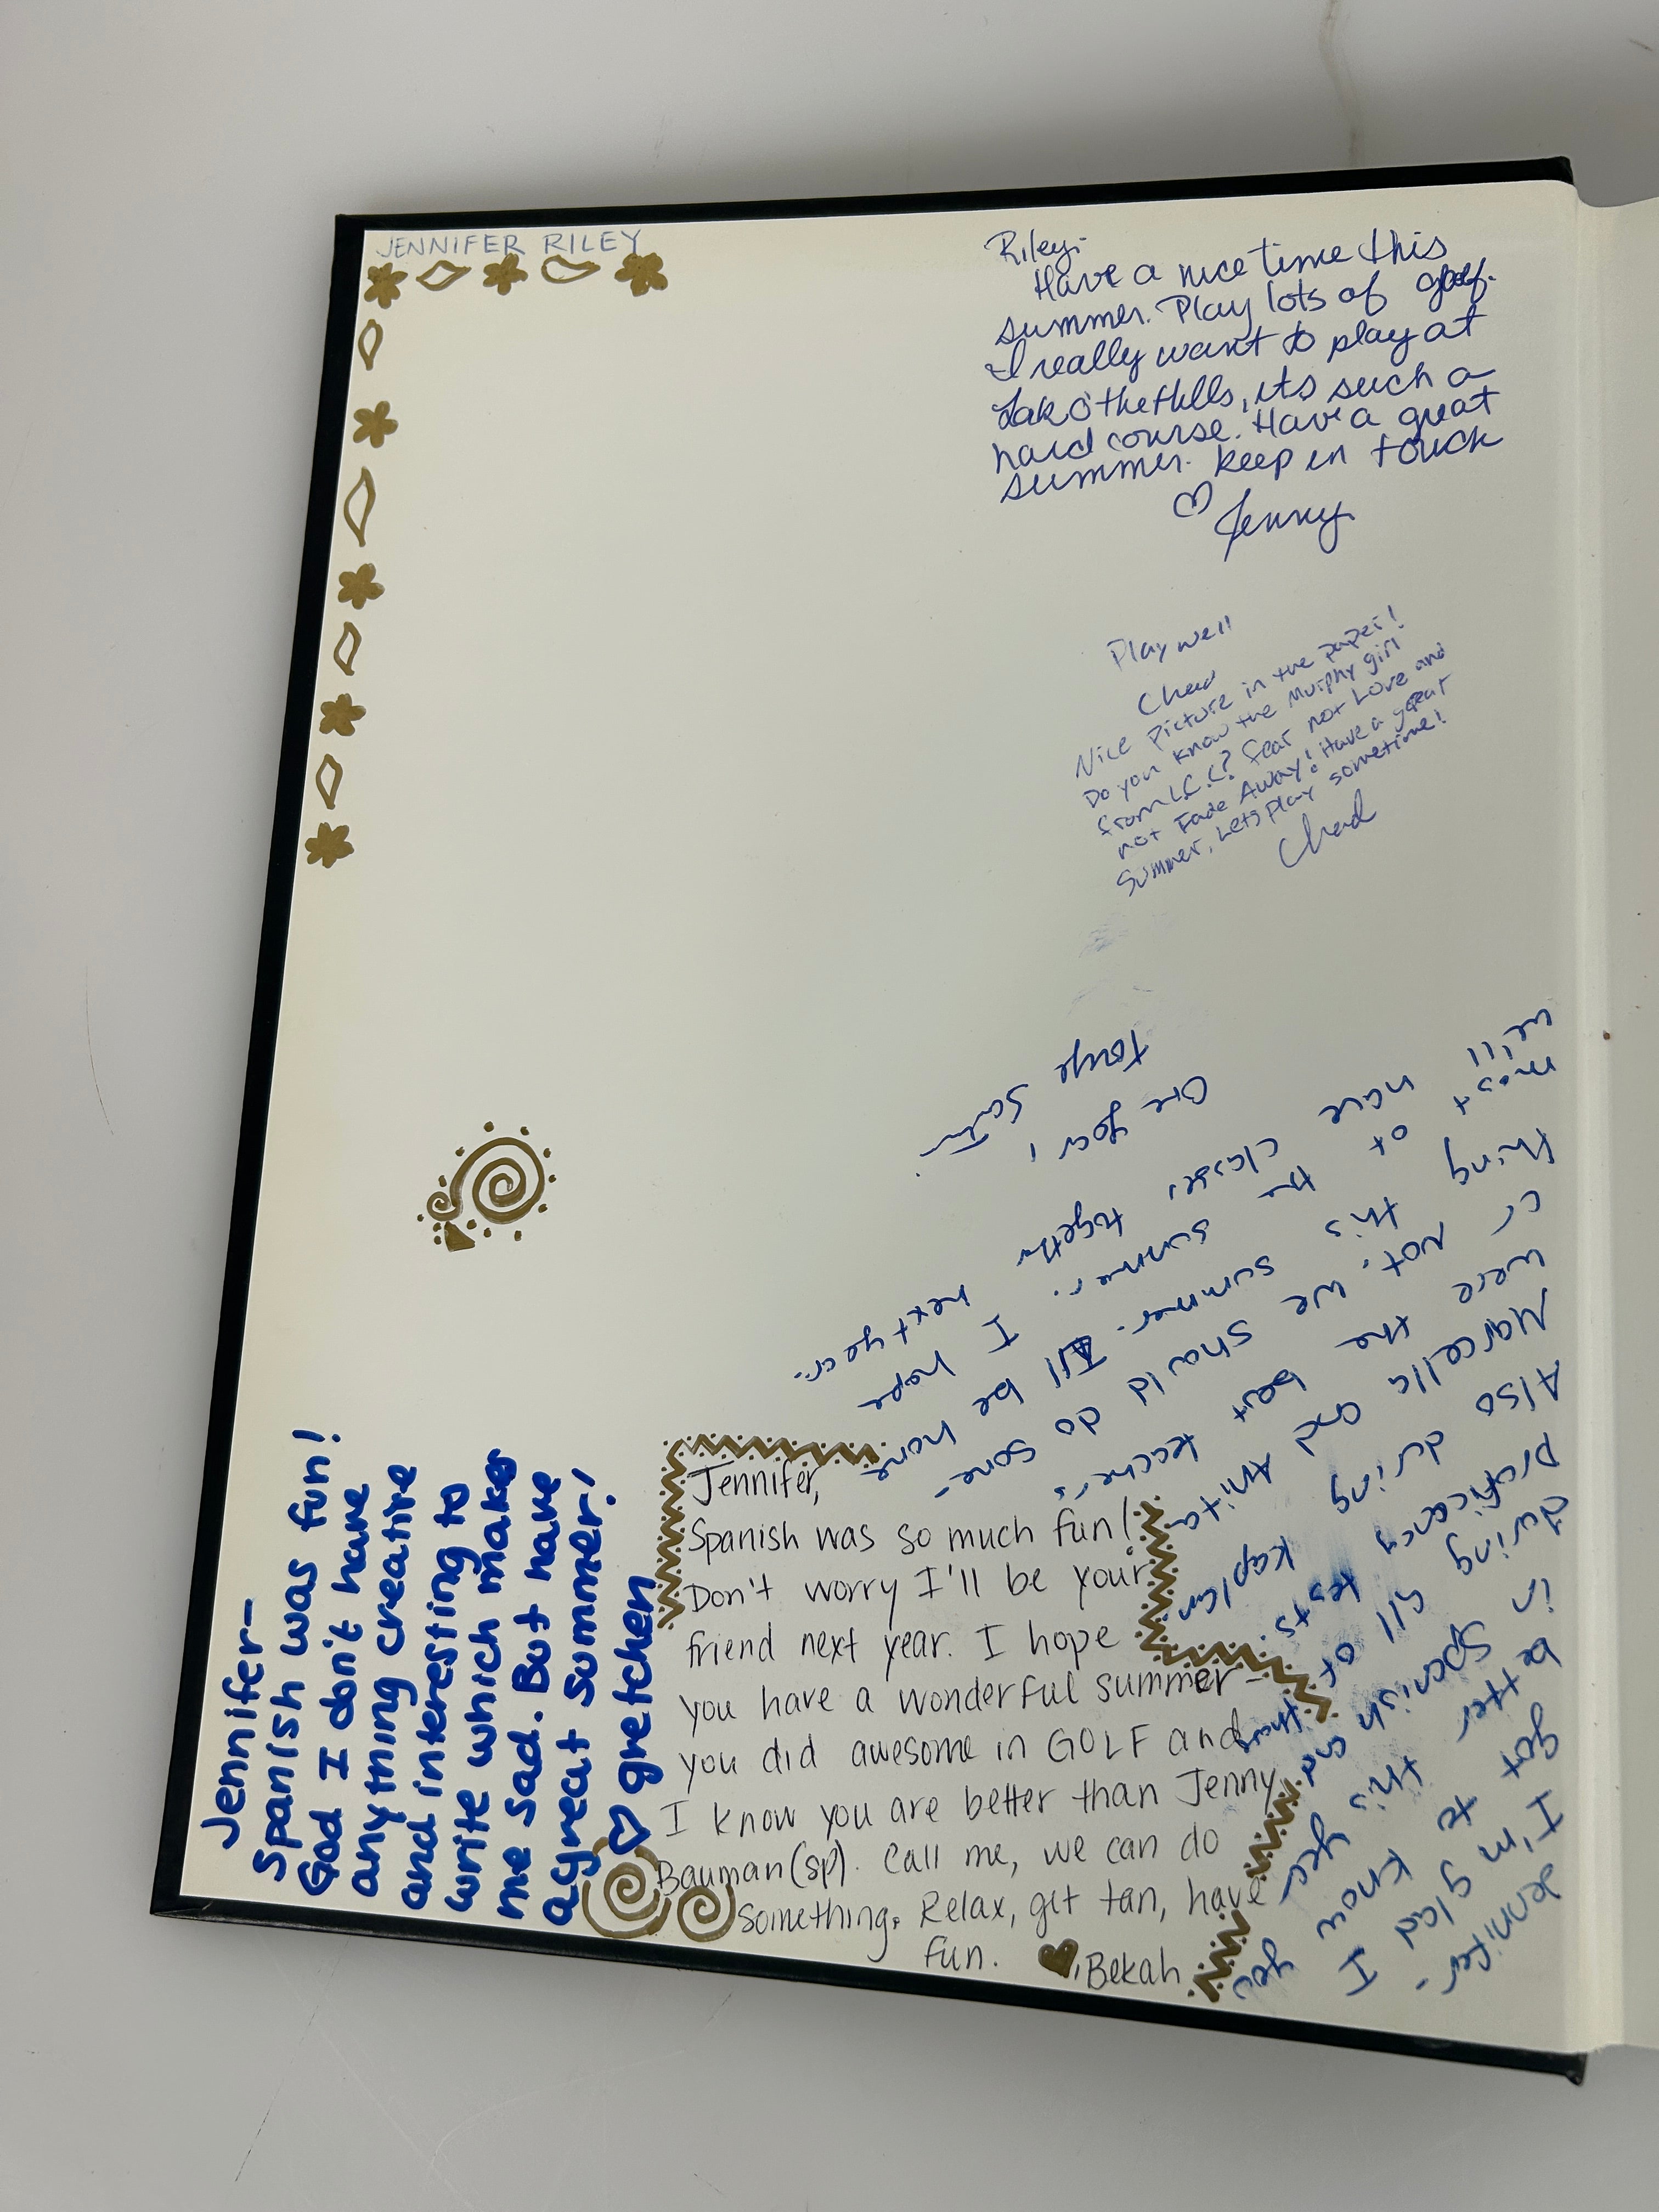 JENNIFER RILEY
Riley-
Have a nice time this
summer. Play lots of golf.
I really want to play at
Lak o' the Hills, its such a
hard course. Have a great
summer. keep in touch
♡ Jenny
Play well
Chad
Nice Picture in the paper!
Do you know the Murphy girl
from L.C.C? Fear not Love and
not Fade Away! Have a great
Summer, Lets Play sometime!
Chad
Jennifer-
I'm glad I
got to know you
better this year
in Spanish and
during all of those
proficiency tests.
Also during Kaplan.
Marcella and Anita
were the best teachers
or not. we should do some-
thing this summer. I'll be home
most of the summer. I hope
we'll have classes together next year.
Are you,
Jennifer-
Spanish was fun!
God I don't have
anything creative
and interesting to
write which makes
me sad. But have
a great summer!
♡ gretchen
Jennifer,
Spanish was so much fun!
Don't worry I'll be your
friend next year. I hope
you have a wonderful summer-
you did awesome in GOLF and
I know you are better than Jenny
Bauman(sp). Call me, we can do
something. Relax, get tan, have
fun. ♥, Bekah